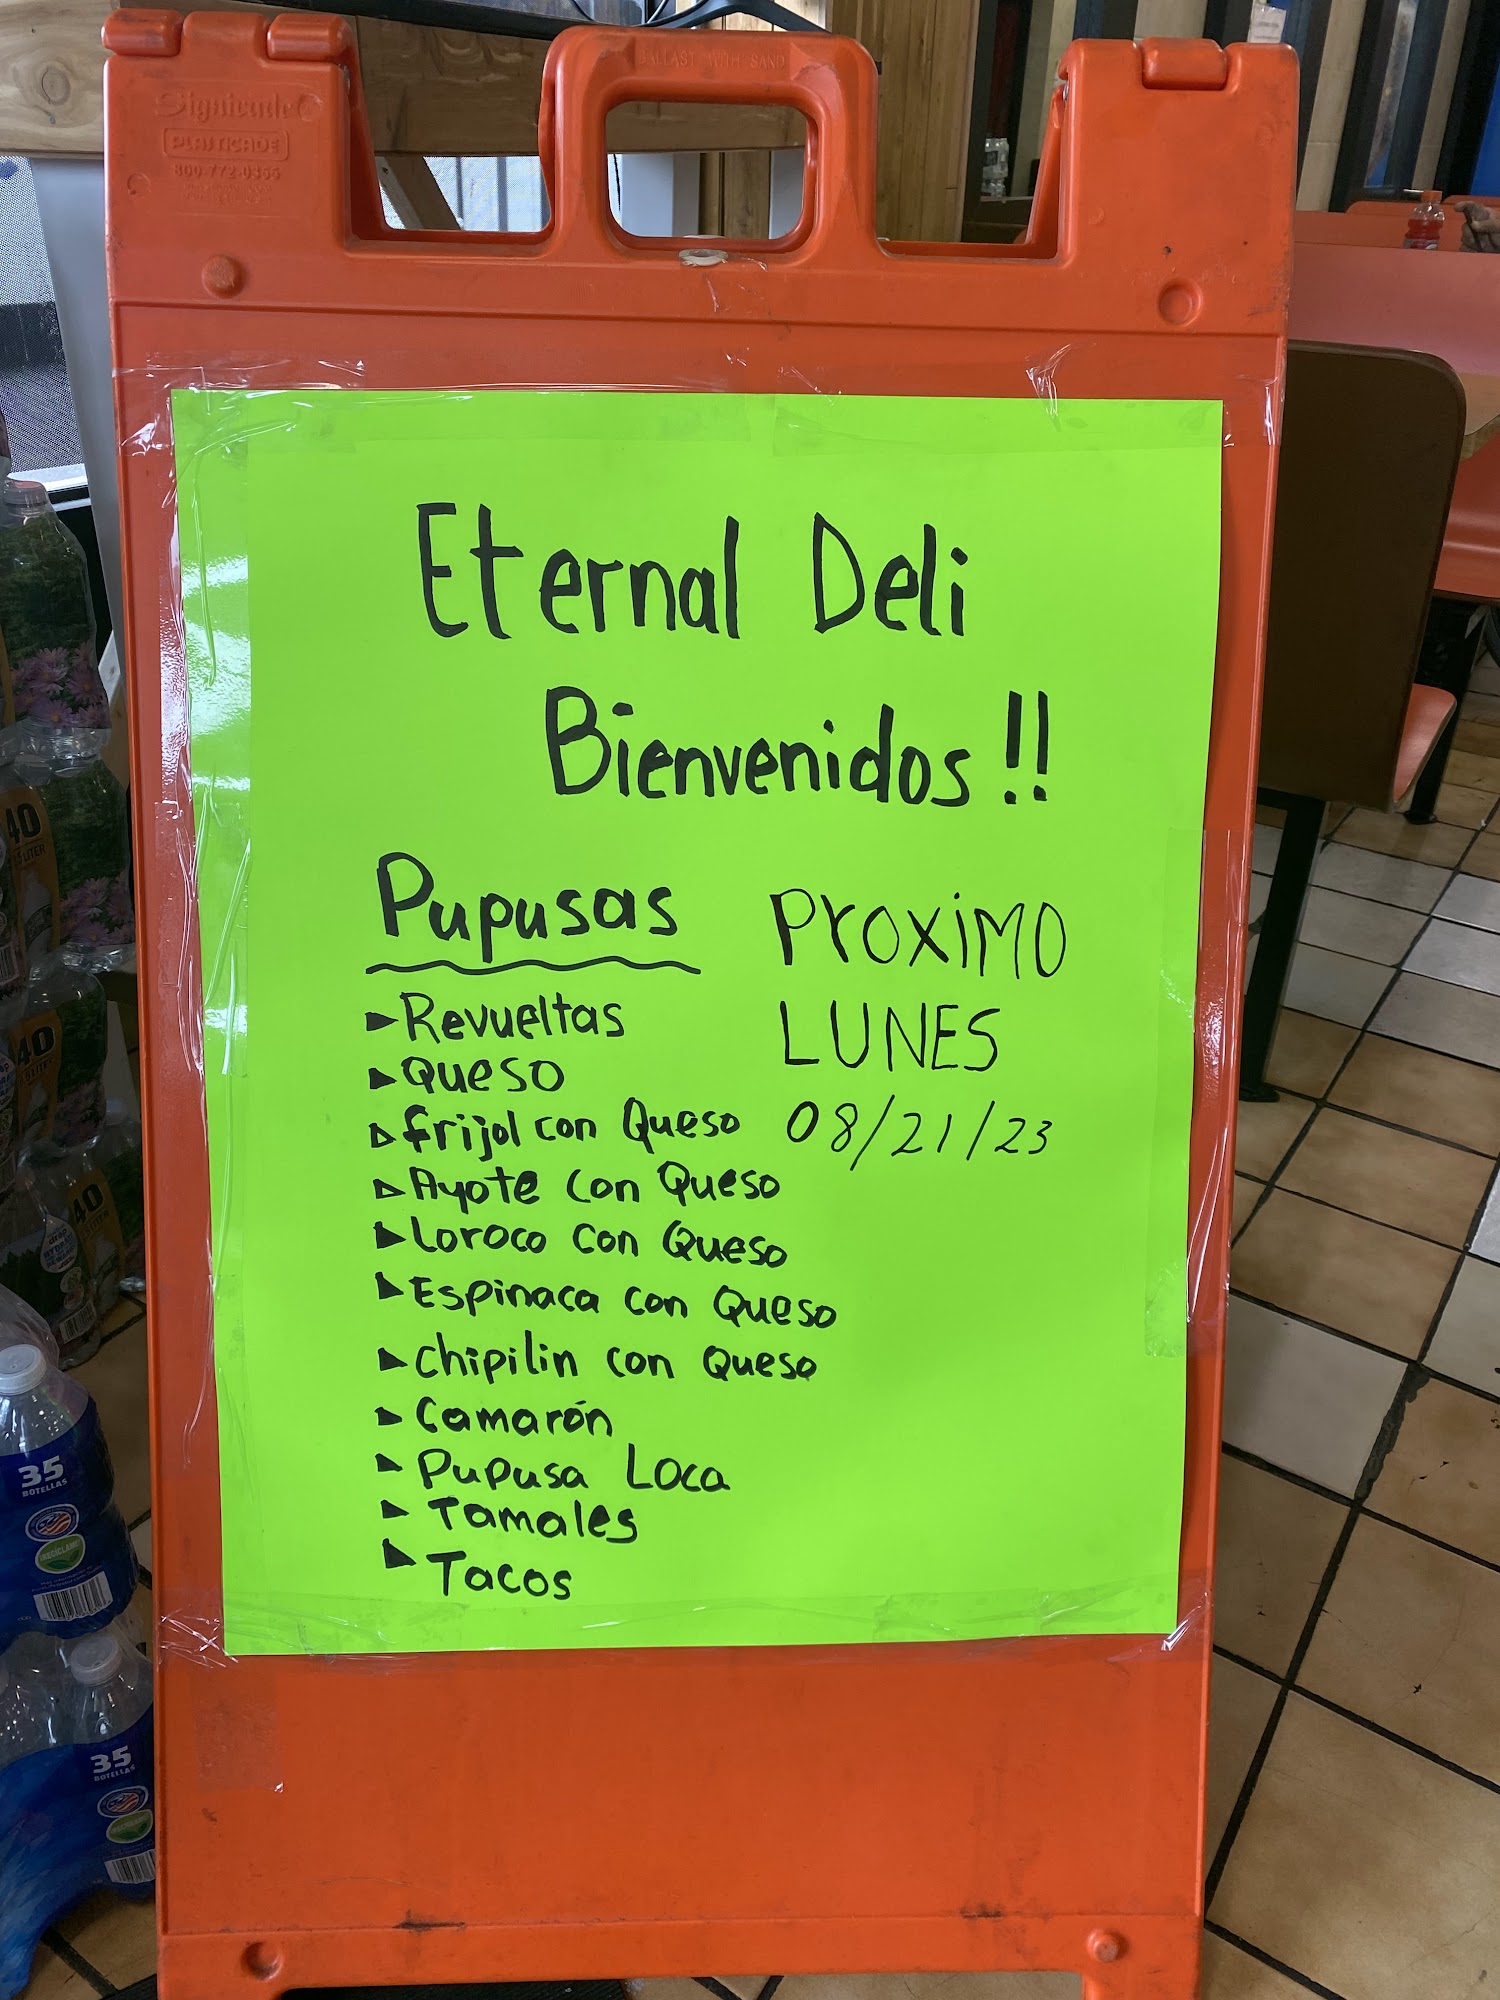 BALLAST WITH SAND
Signicade
PLASTICADE
800-772-0355
Eternal Deli
Bienvenidos!!
Pupusas
Revueltas
Queso
frijol con Queso
Ayote con Queso
Loroco con Queso
Espinaca con Queso
Chipilin con Queso
Camarón
Pupusa Loca
Tamales
Tacos
PROXiMO
LUNES
08/21/23
40
40
40
35
BOTELLAS
¡RECÍCLAME!
35
BOTELLAS